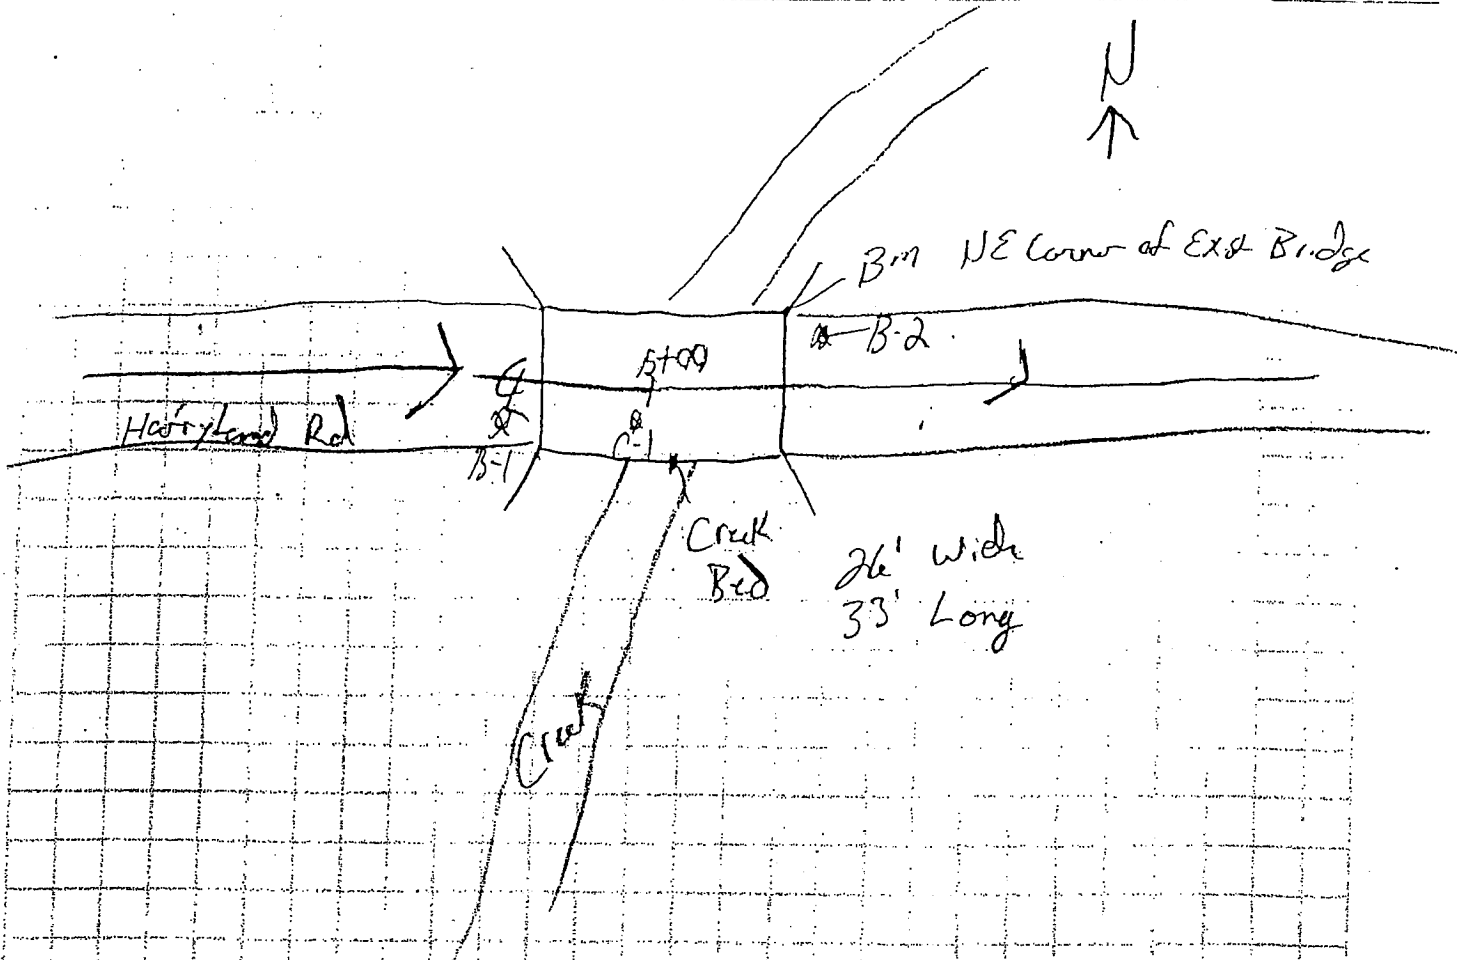 N
Bm NE Corner of Exst Bridge
B-2
Rd
B-1
C-1
Creek
Bed
26' Wide
33' Long
Creek